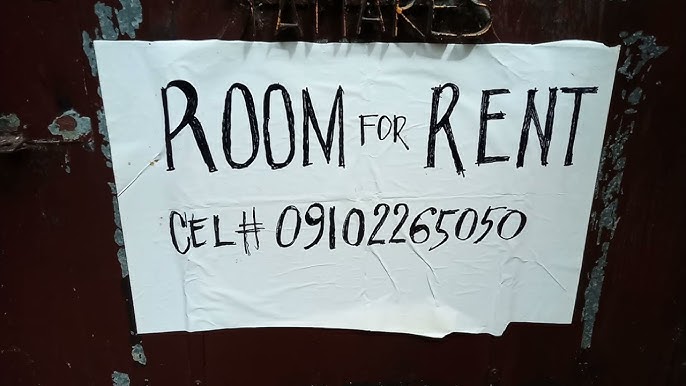 ROOM FOR RENT
CEL# 09102265050